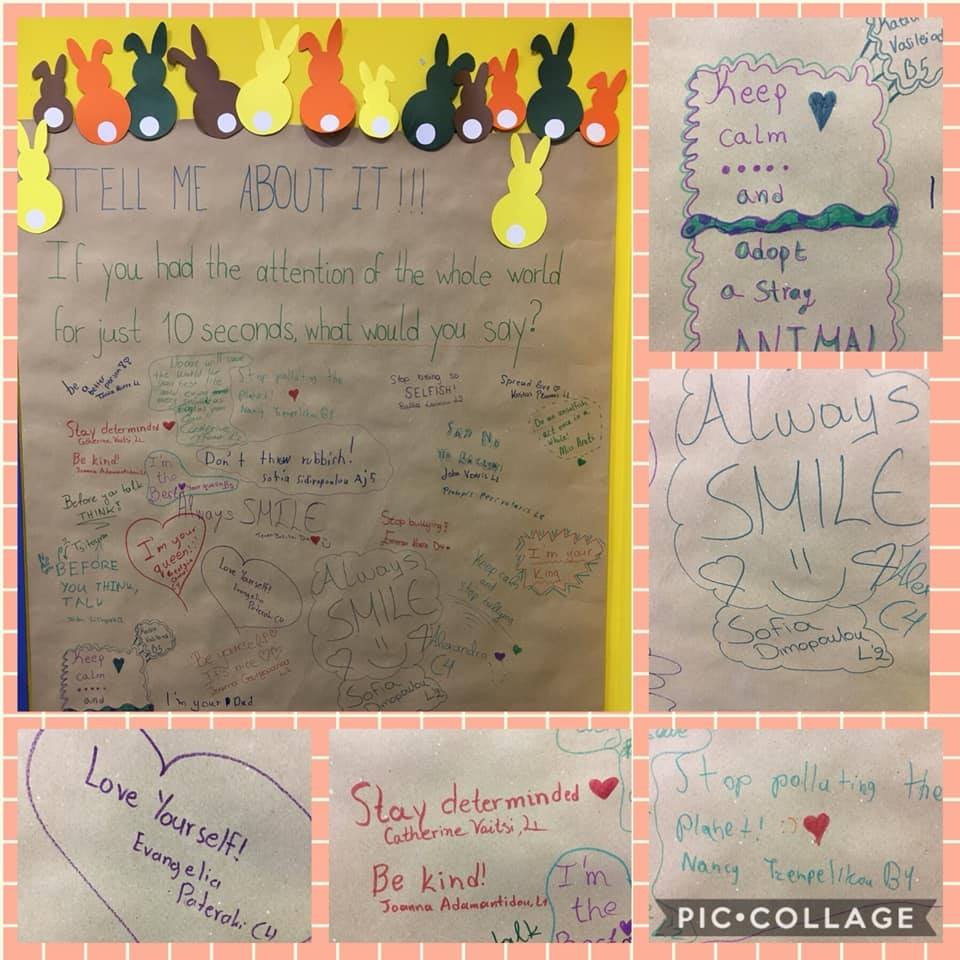 TELL ME ABOUT IT!!!
If you had the attention of the whole world
for just 10 seconds, what would you say?
be a
better
person
Stop polluting the
planet!
Nancy Tzenpelikou B4
Stop being so
SELFISH!
Spread love
Do an unselfish
act once in a
while!
Stay determinded
Catherine Vaitsi, L1
Be kind!
Joanna Adamantidou
I'm
the
Best
Don't thrw rubbish!
sofia Sidiropoulou Aj5
Say No
Before you talk
THINK!
Always SMILE
Stop bullying!
I'm your
queen!!!
I'm your
King
BEFORE
YOU THINK,
TALK
Love Yourself!
Evangelia
Pateraki C4
Always
SMILE
Alexandra
C4
Sofia
Dimopoulou
L2
Keep calm
and
stop bullying
Be yourself
Keep
calm
and
I'm your Dad
Vasileiad
B5
Keep
calm
and
adopt
a stray
ANIMAL
Always
SMILE
Alex
C4
Sofia
Dimopoulou
L2
Love Yourself!
Evangelia
Pateraki C4
Stay determinded
Catherine Vaitsi, L1
Be kind!
Joanna Adamantidou, L1
I'm
the
Best
talk
Stop polluting the
planet! :)
Nancy Tzenpelikou B4
PIC•COLLAGE